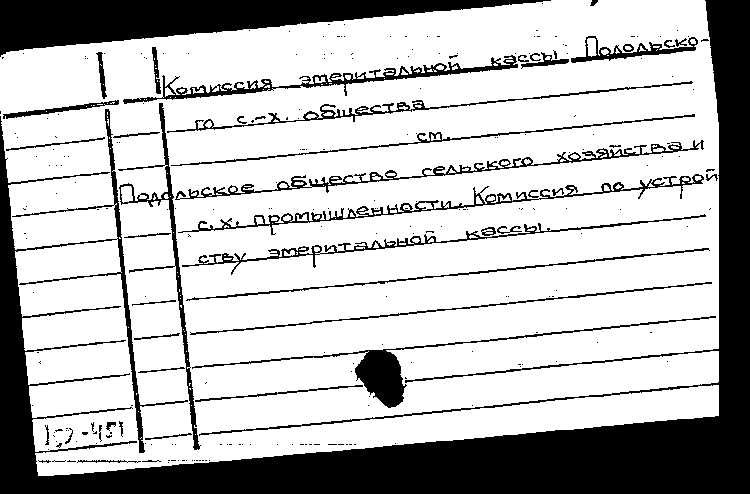 Комиссия эмеритальной кассы Подольско-
го с.-х. общества
см.
Подольское общество сельского хозяйства и
с.х. промышленности. Комиссия по устрой
ству эмеритальной кассы.